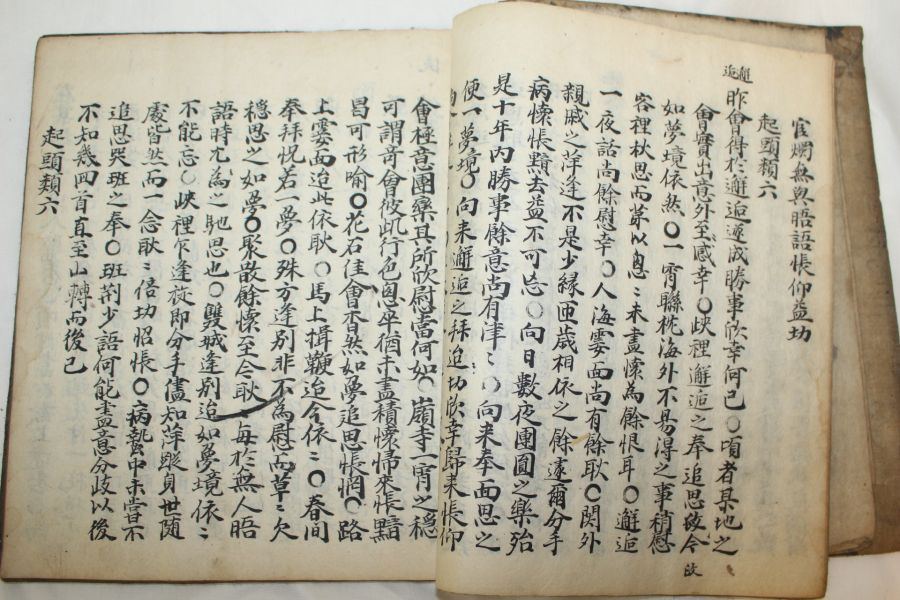 官燭無與晤語悵仰益切
起頭類六
邂逅
昨會得於邂逅遂成勝事欣幸何已○頃者某地之
會實出意外至感幸○峽裡邂逅之奉追思今
如夢境依然○一宵聯枕海外不易得之事稍慰
客裡秋思而草以恖〻未盡懷為餘恨耳○邂逅
一夜話尚餘慰幸○人海霎面尚有餘耿○関外
親戚之萍逢不是少縁匝歲相依之餘遽爾分手
病懷悵黯去益不可忘○向日數夜團圓之樂殆
是十年内勝事餘意尚有津〻○向来奉面思之
便一夢境○向来邂逅之拜迨切欣幸歸来悵仰
會極意團欒其所欣慰當何如○嶺寺一宵之穏
可謂奇會彼此行色恖卒猶未盡積懷帰來悵黯
曷可形喻○花石佳會杳然如夢追思悵惘○路
上霎面迨此依耿○馬上揖鞭迨今依〻○春間
奉拜怳若一夢○殊方逢別非不為慰而草〻欠
穏思之如夢○聚散餘懷至今耿〻每於無人晤
語時尤為之馳思也○雙城逢別迨如夢境依〻
不能忘○峽裡乍逢旋即分手儘知萍蹤貟世随
處皆然而一念耿〻倍切怊悵○病蟄中未嘗不
追思哭班之奉○班荊少語何能盡意分歧以後
不知幾回首直至山轉而後已
起頭類六